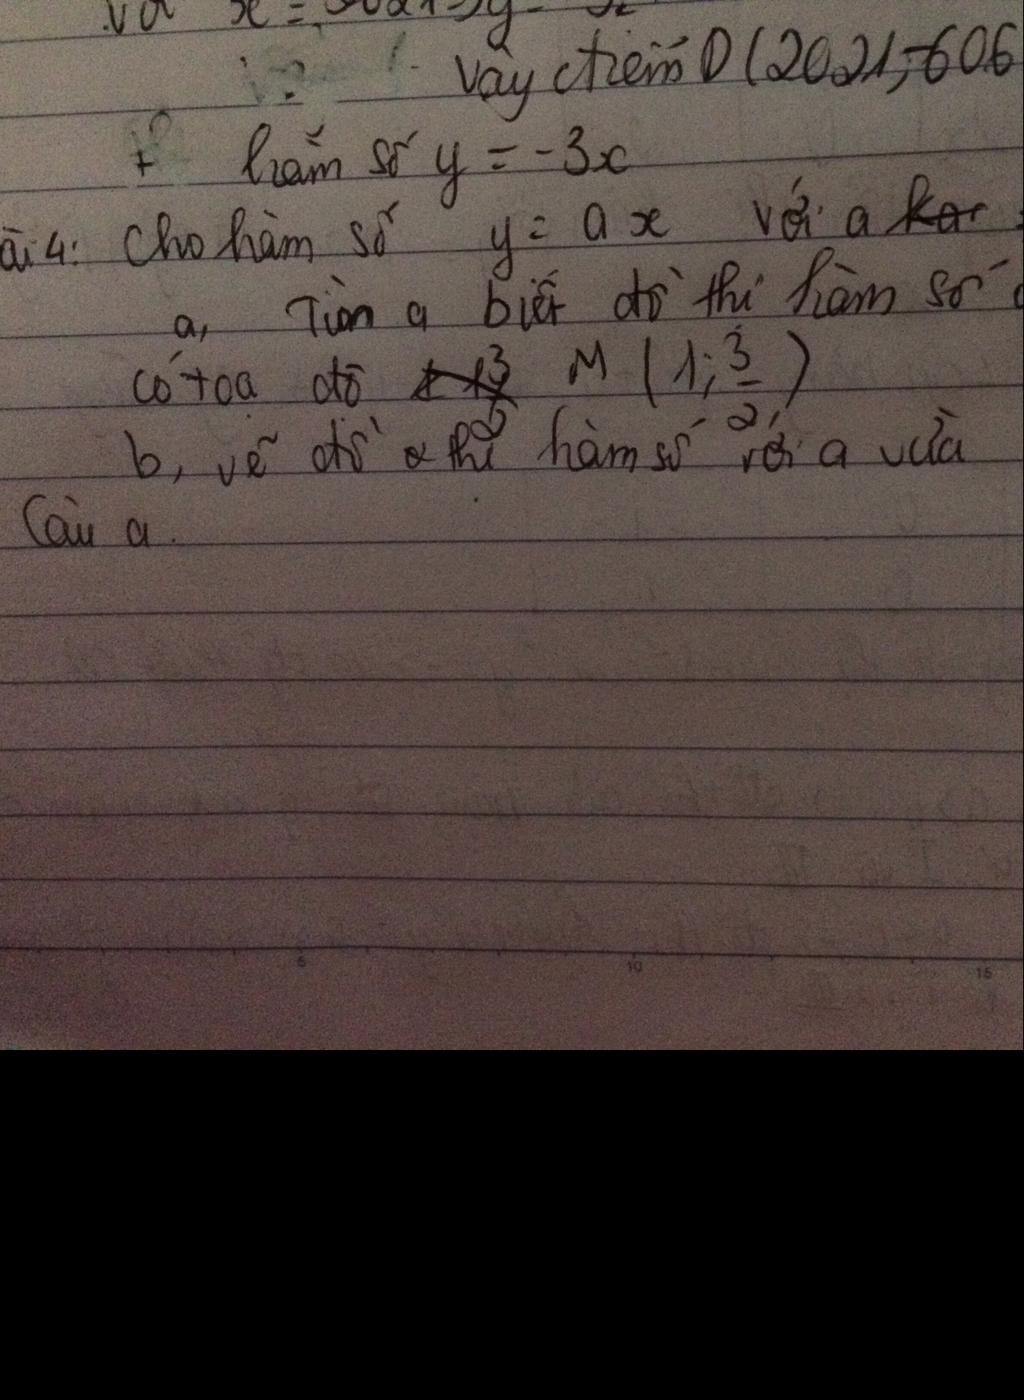 x =
Vậy điểm D (2021; -606
+ hàm số y = -3x
ài 4: Cho hàm số y = ax với a
a, Tìm a biết đồ thị hàm số
có toạ độ M (1; 3/2)
b, vẽ đồ thị hàm số với a vừa
Câu a.
5 10 15